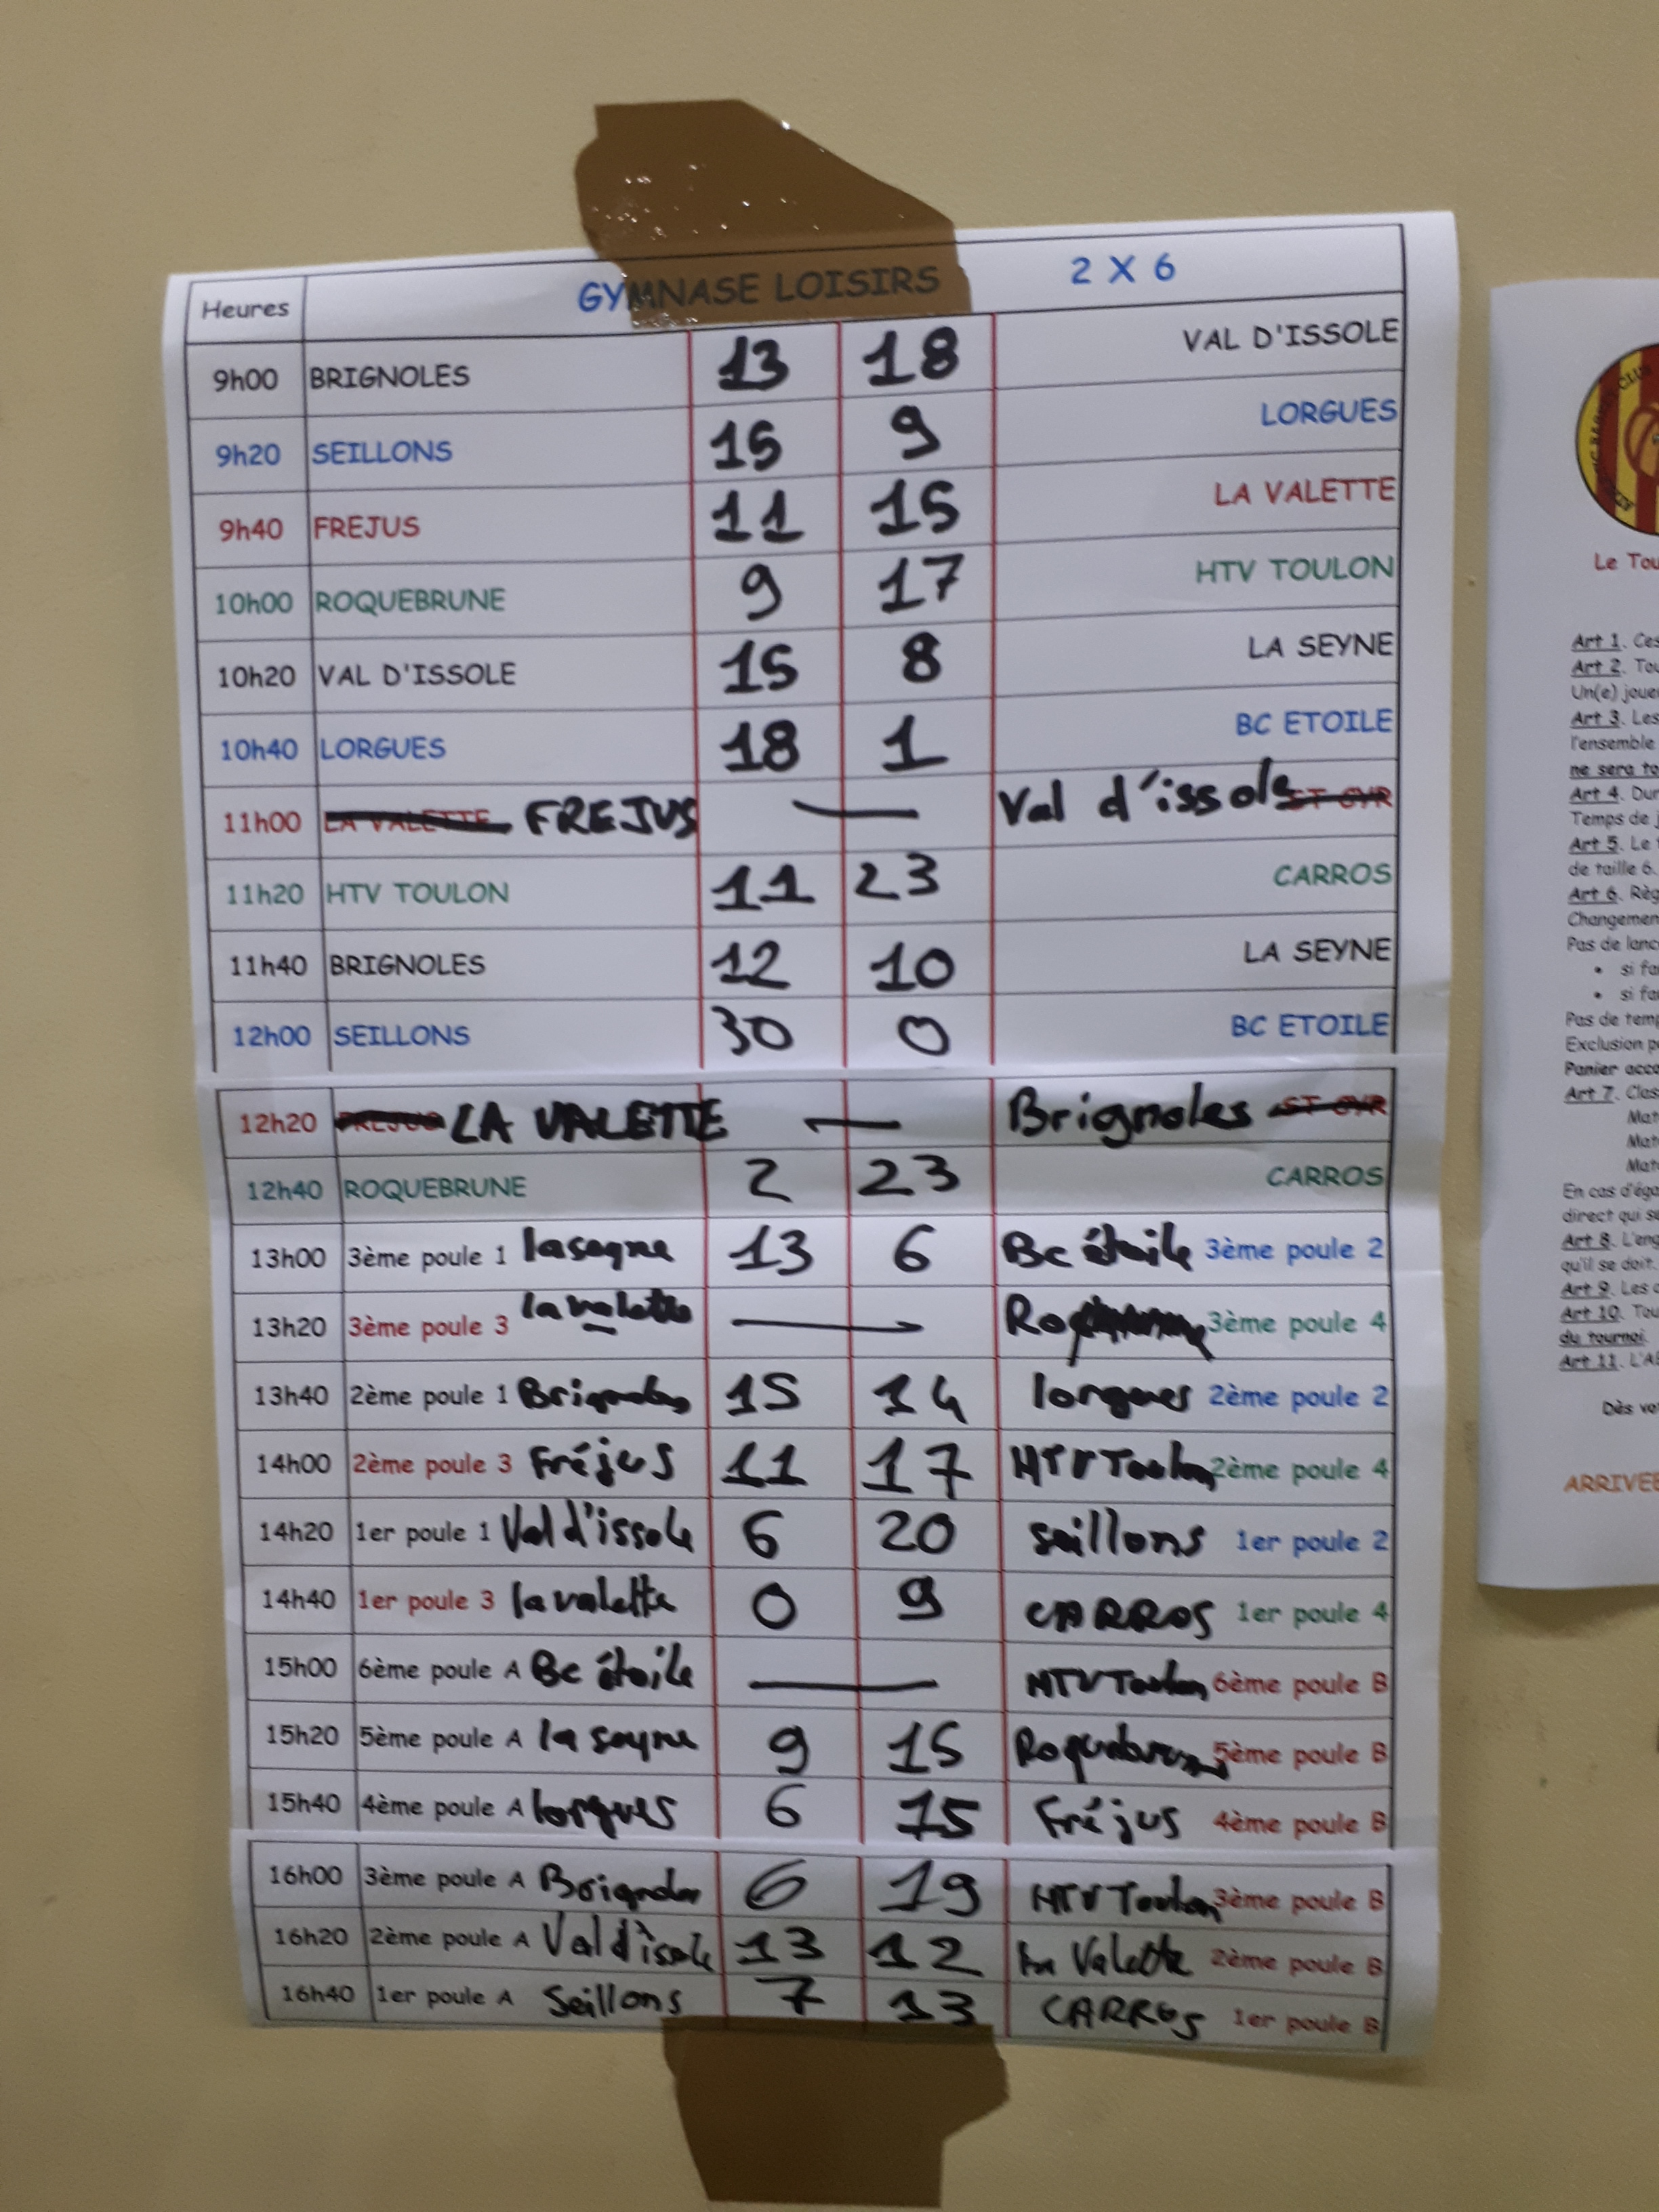 Heures GYMNASE LOISIRS 2 X 6
9h00 BRIGNOLES 13 18 VAL D'ISSOLE
9h20 SEILLONS 15 9 LORGUES
9h40 FREJUS 11 15 LA VALETTE
10h00 ROQUEBRUNE 9 17 HTV TOULON
10h20 VAL D'ISSOLE 15 8 LA SEYNE
10h40 LORGUES 18 1 BC ETOILE
11h00 LA VALETTE FREJUS — Val d'issole ST CYR
11h20 HTV TOULON 11 23 CARROS
11h40 BRIGNOLES 12 10 LA SEYNE
12h00 SEILLONS 30 0 BC ETOILE
12h20 FREJUS LA VALETTE — Brignoles ST CYR
12h40 ROQUEBRUNE 2 23 CARROS
13h00 3ème poule 1 la seyne 13 6 Bc étoile 3ème poule 2
13h20 3ème poule 3 la valette — 3ème poule 4
13h40 2ème poule 1 Brignoles 15 14 lorgues 2ème poule 2
14h00 2ème poule 3 Fréjus 11 17 HTV Toulon 2ème poule 4
14h20 1er poule 1 Val d'issole 6 20 seillons 1er poule 2
14h40 1er poule 3 la valette 0 9 CARROS 1er poule 4
15h00 6ème poule A Bc étoile — HTV Toulon 6ème poule B
15h20 5ème poule A la seyne 9 15 Roquebrune 5ème poule B
15h40 4ème poule A lorgues 6 15 Fréjus 4ème poule B
16h00 3ème poule A Brignoles 6 19 HTV Toulon 3ème poule B
16h20 2ème poule A Val d'issole 13 12 La Valette 2ème poule B
16h40 1er poule A Seillons 7 13 CARROS 1er poule B
Le Tou
Art 1. Ces
Art 2. Tou
Un(e) joue
Art 3. Les
l'ensemble
ne sera to
Art 4. Dur
Temps de j
Art 5. Le
de taille 6.
Art 6. Règ
Changemen
Pas de lanc
• si fa
• si fa
Pas de temp
Exclusion p
Panier acco
Art 7. Clas
Mat
Mat
Mat
En cas d'éga
direct qui s
Art 8. L'eng
qu'il se doit.
Art 9. Les
Art 10. Tou
du tournoi.
Art 11. L'A
Dès vo
ARRIVEE